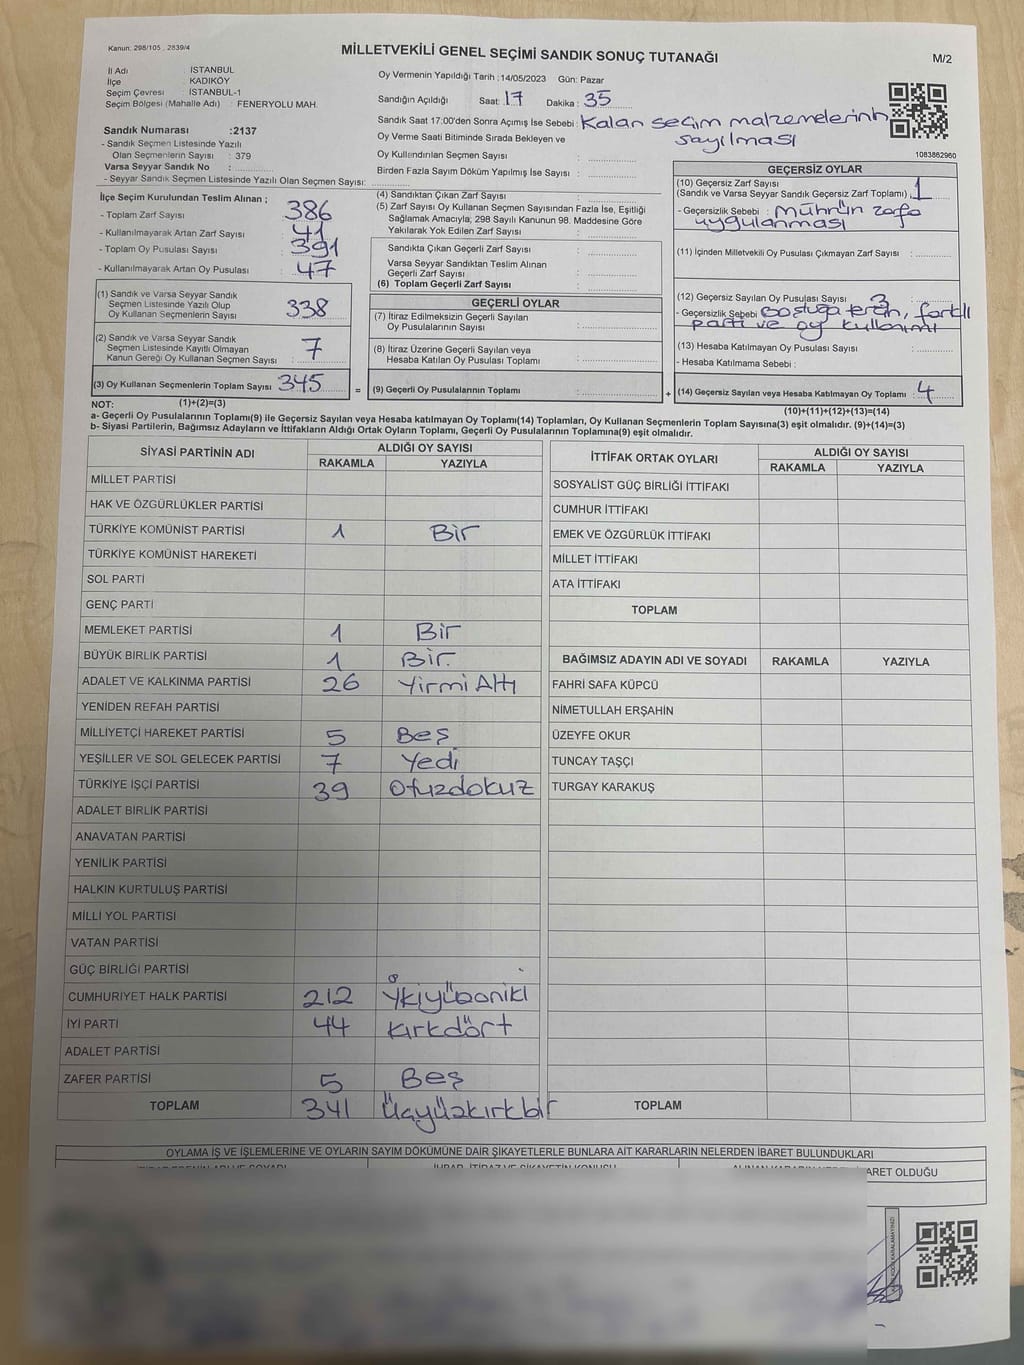 Kanun: 298/105 , 2839/4
MİLLETVEKİLİ GENEL SEÇİMİ SANDIK SONUÇ TUTANAĞI
M/2
İl Adı : İSTANBUL
İlçe : KADIKÖY
Seçim Çevresi : İSTANBUL-1
Seçim Bölgesi (Mahalle Adı) : FENERYOLU MAH.
Sandık Numarası :2137
- Sandık Seçmen Listesinde Yazılı
Olan Seçmenlerin Sayısı : 379
Varsa Seyyar Sandık No :
- Seyyar Sandık Seçmen Listesinde Yazılı Olan Seçmen Sayısı:
Oy Vermenin Yapıldığı Tarih :14/05/2023 Gün: Pazar
Sandığın Açıldığı Saat: 17 Dakika : 35
Sandık Saat 17:00'den Sonra Açımış İse Sebebi : Kalan seçim malzemelerinin
sayılması
Oy Verme Saati Bitiminde Sırada Bekleyen ve
Oy Kullendırılan Seçmen Sayısı :
Birden Fazla Sayım Döküm Yapılmış İse Sayısı :
1083862960
İlçe Seçim Kurulundan Teslim Alınan ;
- Toplam Zarf Sayısı : 386
- Kullanılmayarak Artan Zarf Sayısı : 41
- Toplam Oy Pusulası Sayısı : 391
- Kullanılmayarak Artan Oy Pusulası : 47
(1) Sandık ve Varsa Seyyar Sandık
Seçmen Listesinde Yazılı Olup
Oy Kullanan Seçmenlerin Sayısı : 338
(2) Sandık ve Varsa Seyyar Sandık
Seçmen Listesinde Kayıtlı Olmayan
Kanun Gereği Oy Kullanan Seçmen Sayısı : 7
(3) Oy Kullanan Seçmenlerin Toplam Sayısı : 345
(4) Sandıktan Çıkan Zarf Sayısı :
(5) Zarf Sayısı Oy Kullanan Seçmen Sayısından Fazla İse, Eşitliği
Sağlamak Amacıyla; 298 Sayılı Kanunun 98. Maddesine Göre
Yakılarak Yok Edilen Zarf Sayısı :
Sandıkta Çıkan Geçerli Zarf Sayısı :
Varsa Seyyar Sandıktan Teslim Alınan
Geçerli Zarf Sayısı :
(6) Toplam Geçerli Zarf Sayısı :
GEÇERLİ OYLAR
(7) İtiraz Edilmeksizin Geçerli Sayılan
Oy Pusulalarının Sayısı :
(8) İtiraz Üzerine Geçerli Sayılan veya
Hesaba Katılan Oy Pusulası Toplamı :
= (9) Geçerli Oy Pusulalarının Toplamı :
GEÇERSİZ OYLAR
(10) Geçersiz Zarf Sayısı
(Sandık ve Varsa Seyyar Sandık Geçersiz Zarf Toplamı) : 1
- Geçersizlik Sebebi : mührün zarfa
uygulanması
(11) İçinden Milletvekili Oy Pusulası Çıkmayan Zarf Sayısı :
(12) Geçersiz Sayılan Oy Pusulası Sayısı : 3
- Geçersizlik Sebebi : Boşluğa teren, farklı
parti ve oy kullanımı
(13) Hesaba Katılmayan Oy Pusulası Sayısı :
- Hesaba Katılmama Sebebi :
+ (14) Geçersiz Sayılan veya Hesaba Katılmayan Oy Toplamı : 4
NOT: (1)+(2)=(3)
(10)+(11)+(12)+(13)=(14)
a- Geçerli Oy Pusulalarının Toplamı(9) ile Geçersiz Sayılan veya Hesaba katılmayan Oy Toplamı(14) Toplamları, Oy Kullanan Seçmenlerin Toplam Sayısına(3) eşit olmalıdır. (9)+(14)=(3)
b- Siyasi Partilerin, Bağımsız Adayların ve İttifakların Aldığı Ortak Oyların Toplamı, Geçerli Oy Pusulalarının Toplamına(9) eşit olmalıdır.
SİYASİ PARTİNİN ADI
ALDIĞI OY SAYISI
RAKAMLA YAZIYLA
MİLLET PARTİSİ
HAK VE ÖZGÜRLÜKLER PARTİSİ
TÜRKİYE KOMÜNİST PARTİSİ 1 Bir
TÜRKİYE KOMÜNİST HAREKETİ
SOL PARTİ
GENÇ PARTİ
MEMLEKET PARTİSİ 1 Bir
BÜYÜK BİRLİK PARTİSİ 1 Bir.
ADALET VE KALKINMA PARTİSİ 26 Yirmi Altı
YENİDEN REFAH PARTİSİ
MİLLİYETÇİ HAREKET PARTİSİ 5 Beş
YEŞİLLER VE SOL GELECEK PARTİSİ 7 Yedi
TÜRKİYE İŞÇİ PARTİSİ 39 Otuzdokuz
ADALET BİRLİK PARTİSİ
ANAVATAN PARTİSİ
YENİLİK PARTİSİ
HALKIN KURTULUŞ PARTİSİ
MİLLİ YOL PARTİSİ
VATAN PARTİSİ
GÜÇ BİRLİĞİ PARTİSİ
CUMHURİYET HALK PARTİSİ 212 İkiyüzoniki
İYİ PARTİ 44 Kırkdört
ADALET PARTİSİ
ZAFER PARTİSİ 5 Beş
TOPLAM 341 Üçyüzkırkbir
İTTİFAK ORTAK OYLARI
ALDIĞI OY SAYISI
RAKAMLA YAZIYLA
SOSYALİST GÜÇ BİRLİĞİ İTTİFAKI
CUMHUR İTTİFAKI
EMEK VE ÖZGÜRLÜK İTTİFAKI
MİLLET İTTİFAKI
ATA İTTİFAKI
TOPLAM
BAĞIMSIZ ADAYIN ADI VE SOYADI RAKAMLA YAZIYLA
FAHRİ SAFA KÜPCÜ
NİMETULLAH ERŞAHİN
ÜZEYFE OKUR
TUNCAY TAŞÇI
TURGAY KARAKUŞ
TOPLAM
OYLAMA İŞ VE İŞLEMLERİNE VE OYLARIN SAYIM DÖKÜMÜNE DAİR ŞİKAYETLERLE BUNLARA AİT KARARLARIN NELERDEN İBARET BULUNDUKLARI
ARET OLDUĞU